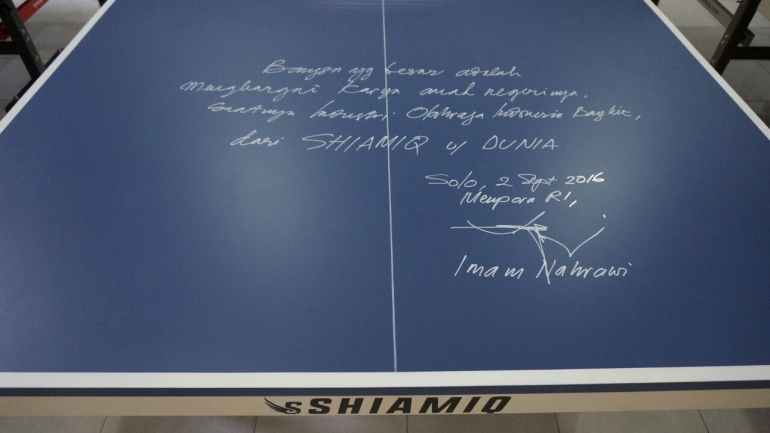 Bangsa yg besar adalah
Menghargai Karya anak negerinya.
Saatnya Industri Olahraga Indonesia Bangkit,
dari SHIAMIQ u/ DUNIA
Solo, 2 Sept 2016
Menpora RI,
Imam Nahrawi
SHIAMIQ